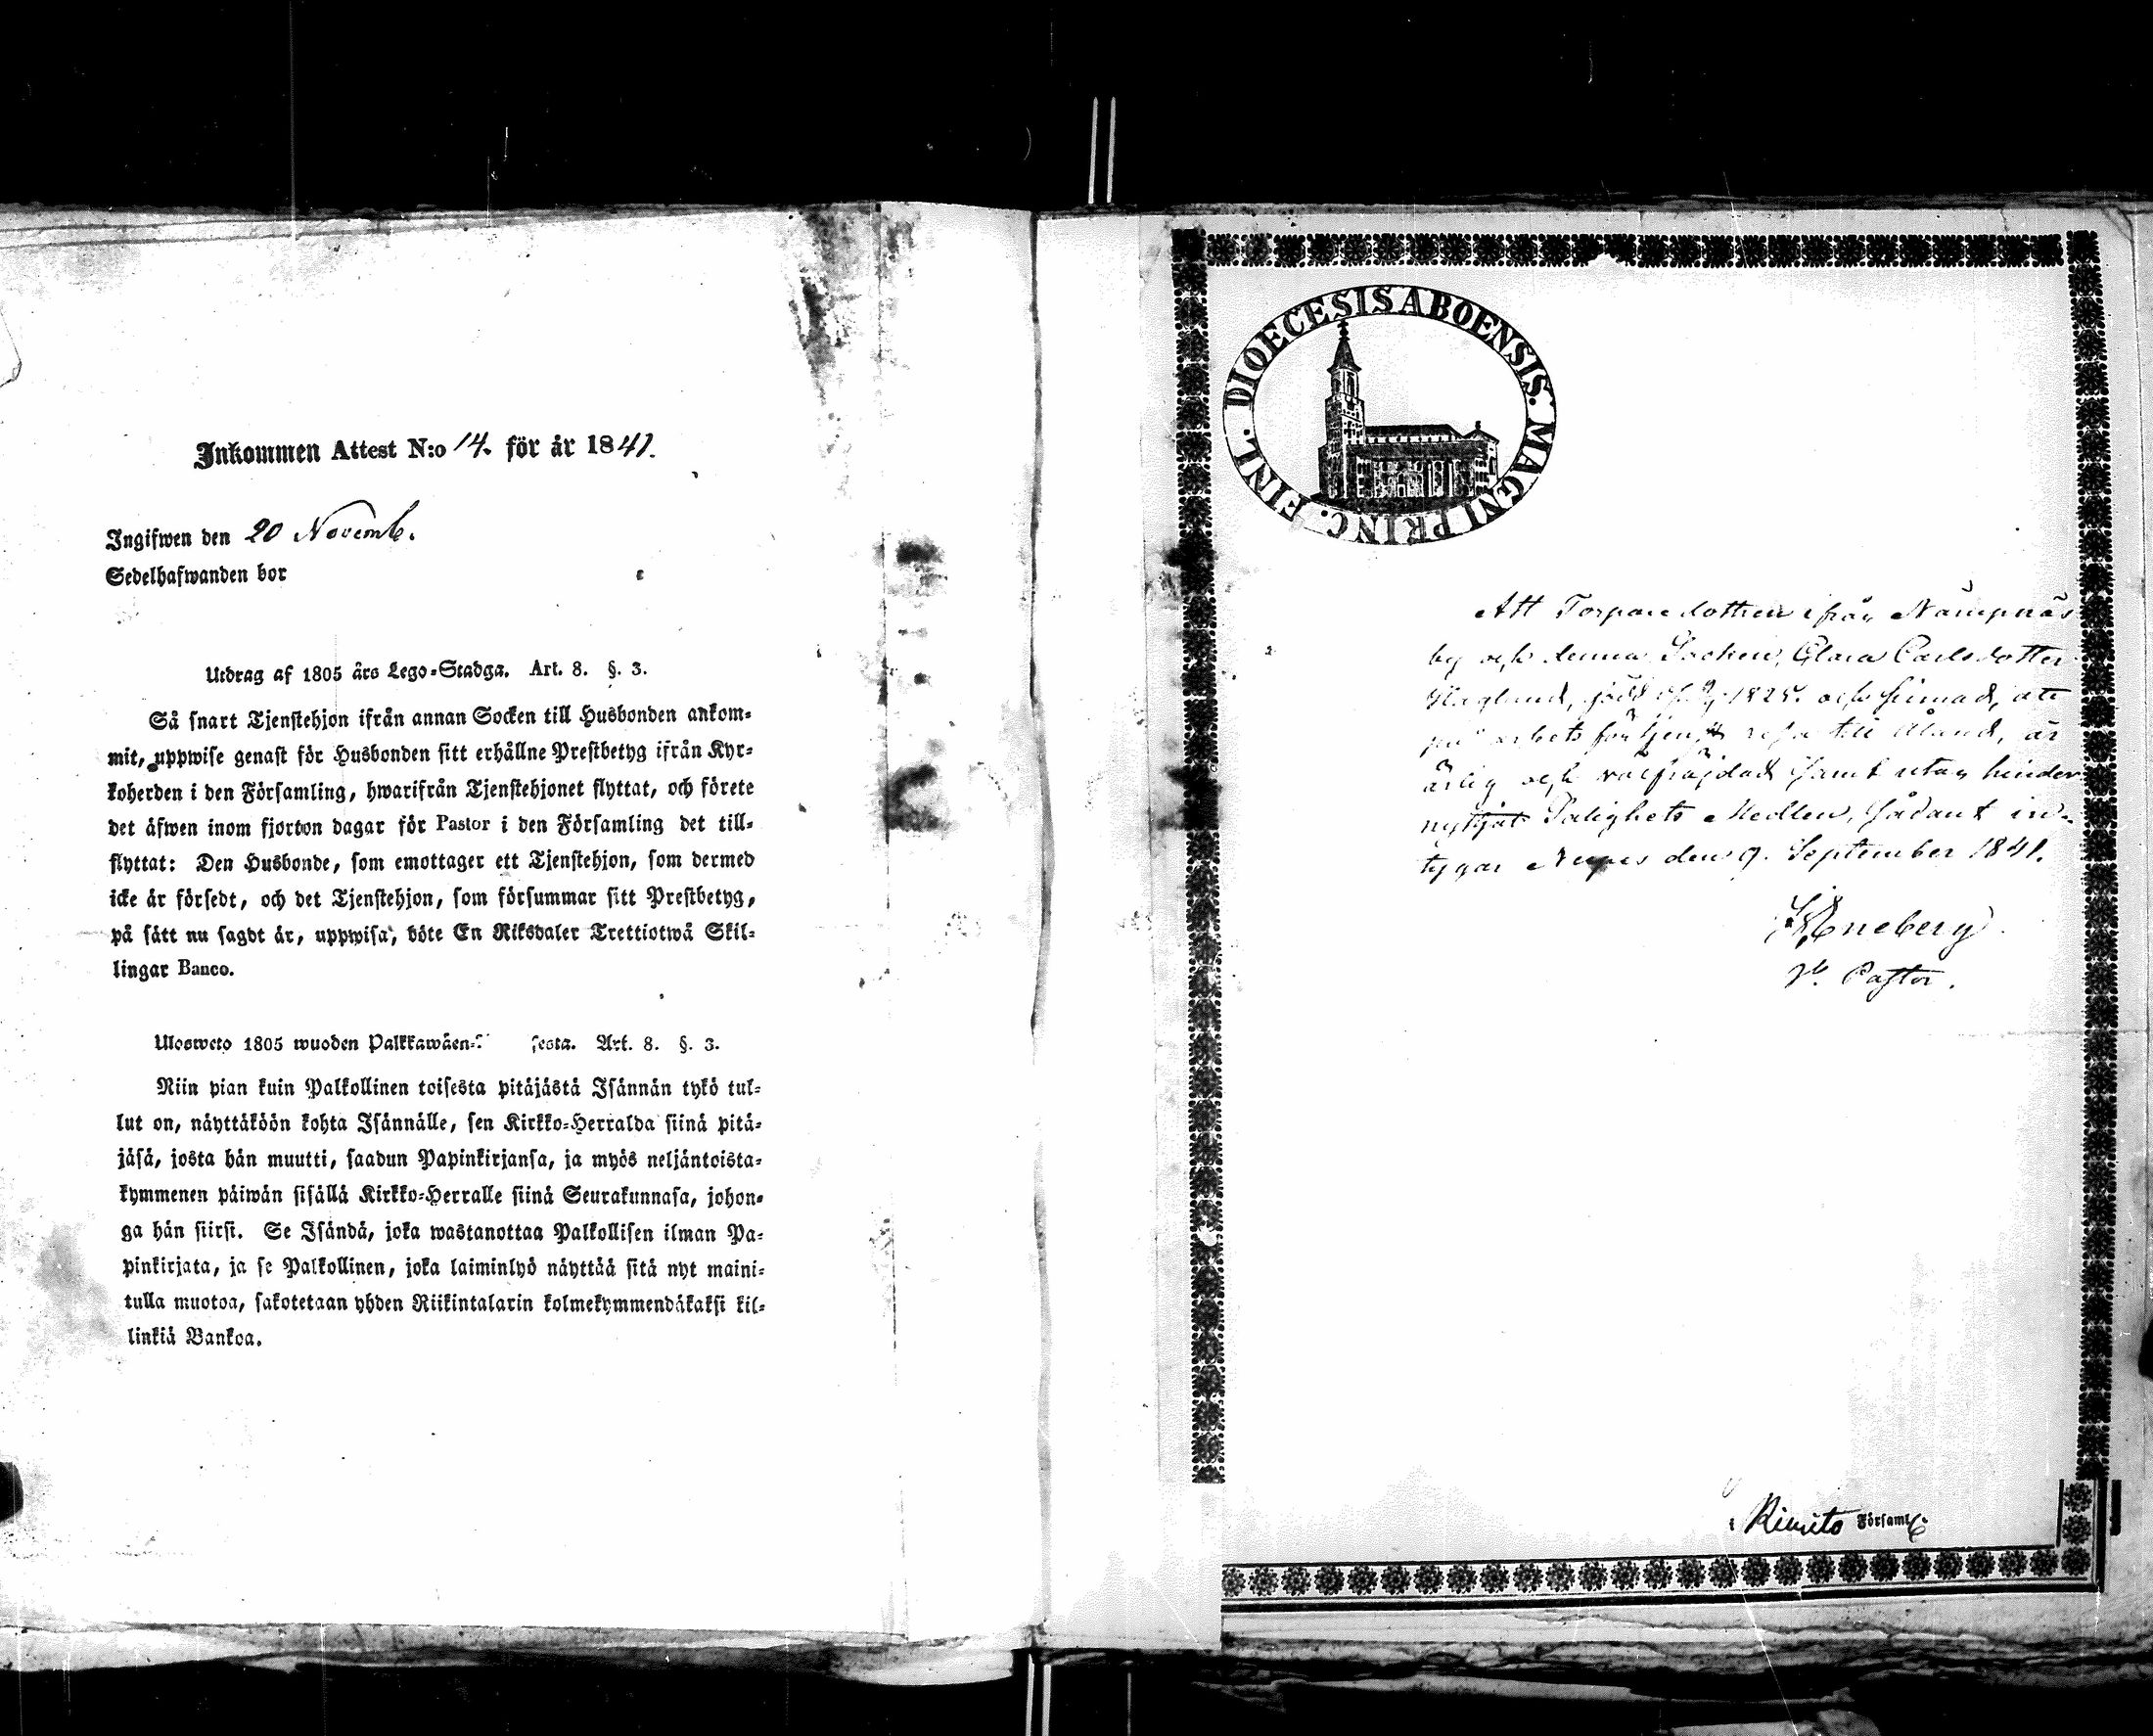 Inkommen Attest N:o 14. för år 1841.
Ingifwen den 20 Novemb.
Sedelhafwanden bor
Utdrag af 1805 års Lego-Stadga. Art. 8. §. 3.
Så snart Tjenstehjon ifrån annan Socken till Husbonden ankom-
mit, uppwise genast för Husbonden sitt erhållne Prestbetyg ifrån Kyr-
koherden i den Församling, hwarifrån Tjenstehjonet flyttat, och förete
det äfwen inom fjorton dagar för Pastor i den Församling det till-
flyttat: Den Husbonde, som emottager ett Tjenstehjon, som dermed
icke är försedt, och det Tjenstehjon, som försummar sitt Prestbetyg,
på sätt nu sagdt är, uppwisa, böte En Riksdaler Trettiotwå Skil-
lingar Banco.
Ulosweto 1805 wuoden Palkkawäen- sesta. Art. 8. §. 3.
Niin pian kuin Palkollinen toisesta pitäjästä Isännän tykö tul-
lut on, näyttäköön kohta Isännälle, sen Kirkko-Herralda siinä pitä-
jäsä, josta hän muutti, saadun Papinkirjansa, ja myös neljäntoista-
kymmenen päiwän sisällä Kirkko-Herralle siinä Seurakunnasa, johon-
ga hän siirsi. Se Isändä, joka wastanottaa Palkollisen ilman Pa-
pinkirjata, ja se Palkollinen, joka laiminlyö näyttää sitä nyt maini-
tulla muotoa, sakotetaan yhden Riikintalarin kolmekymmendäkaksi kil-
linkiä Bankoa.
DIOECESIS ABOENSIS. MAGNI PRINC. FINL.
Att Torparedottren ifrån Nämpnäs
by och denna Socken, Clara Carlsdotter
Haglund, född 1825. och sinnad, att
på arbets förtjenst resa till Åland, är
ärlig och välfräjdad samt utan hinder
nyttjat Salighets Medlen, sådant in-
tygar Nerpes den 9. September 1841.
Eneberg
V. Pastor.
i Kimito Församl.